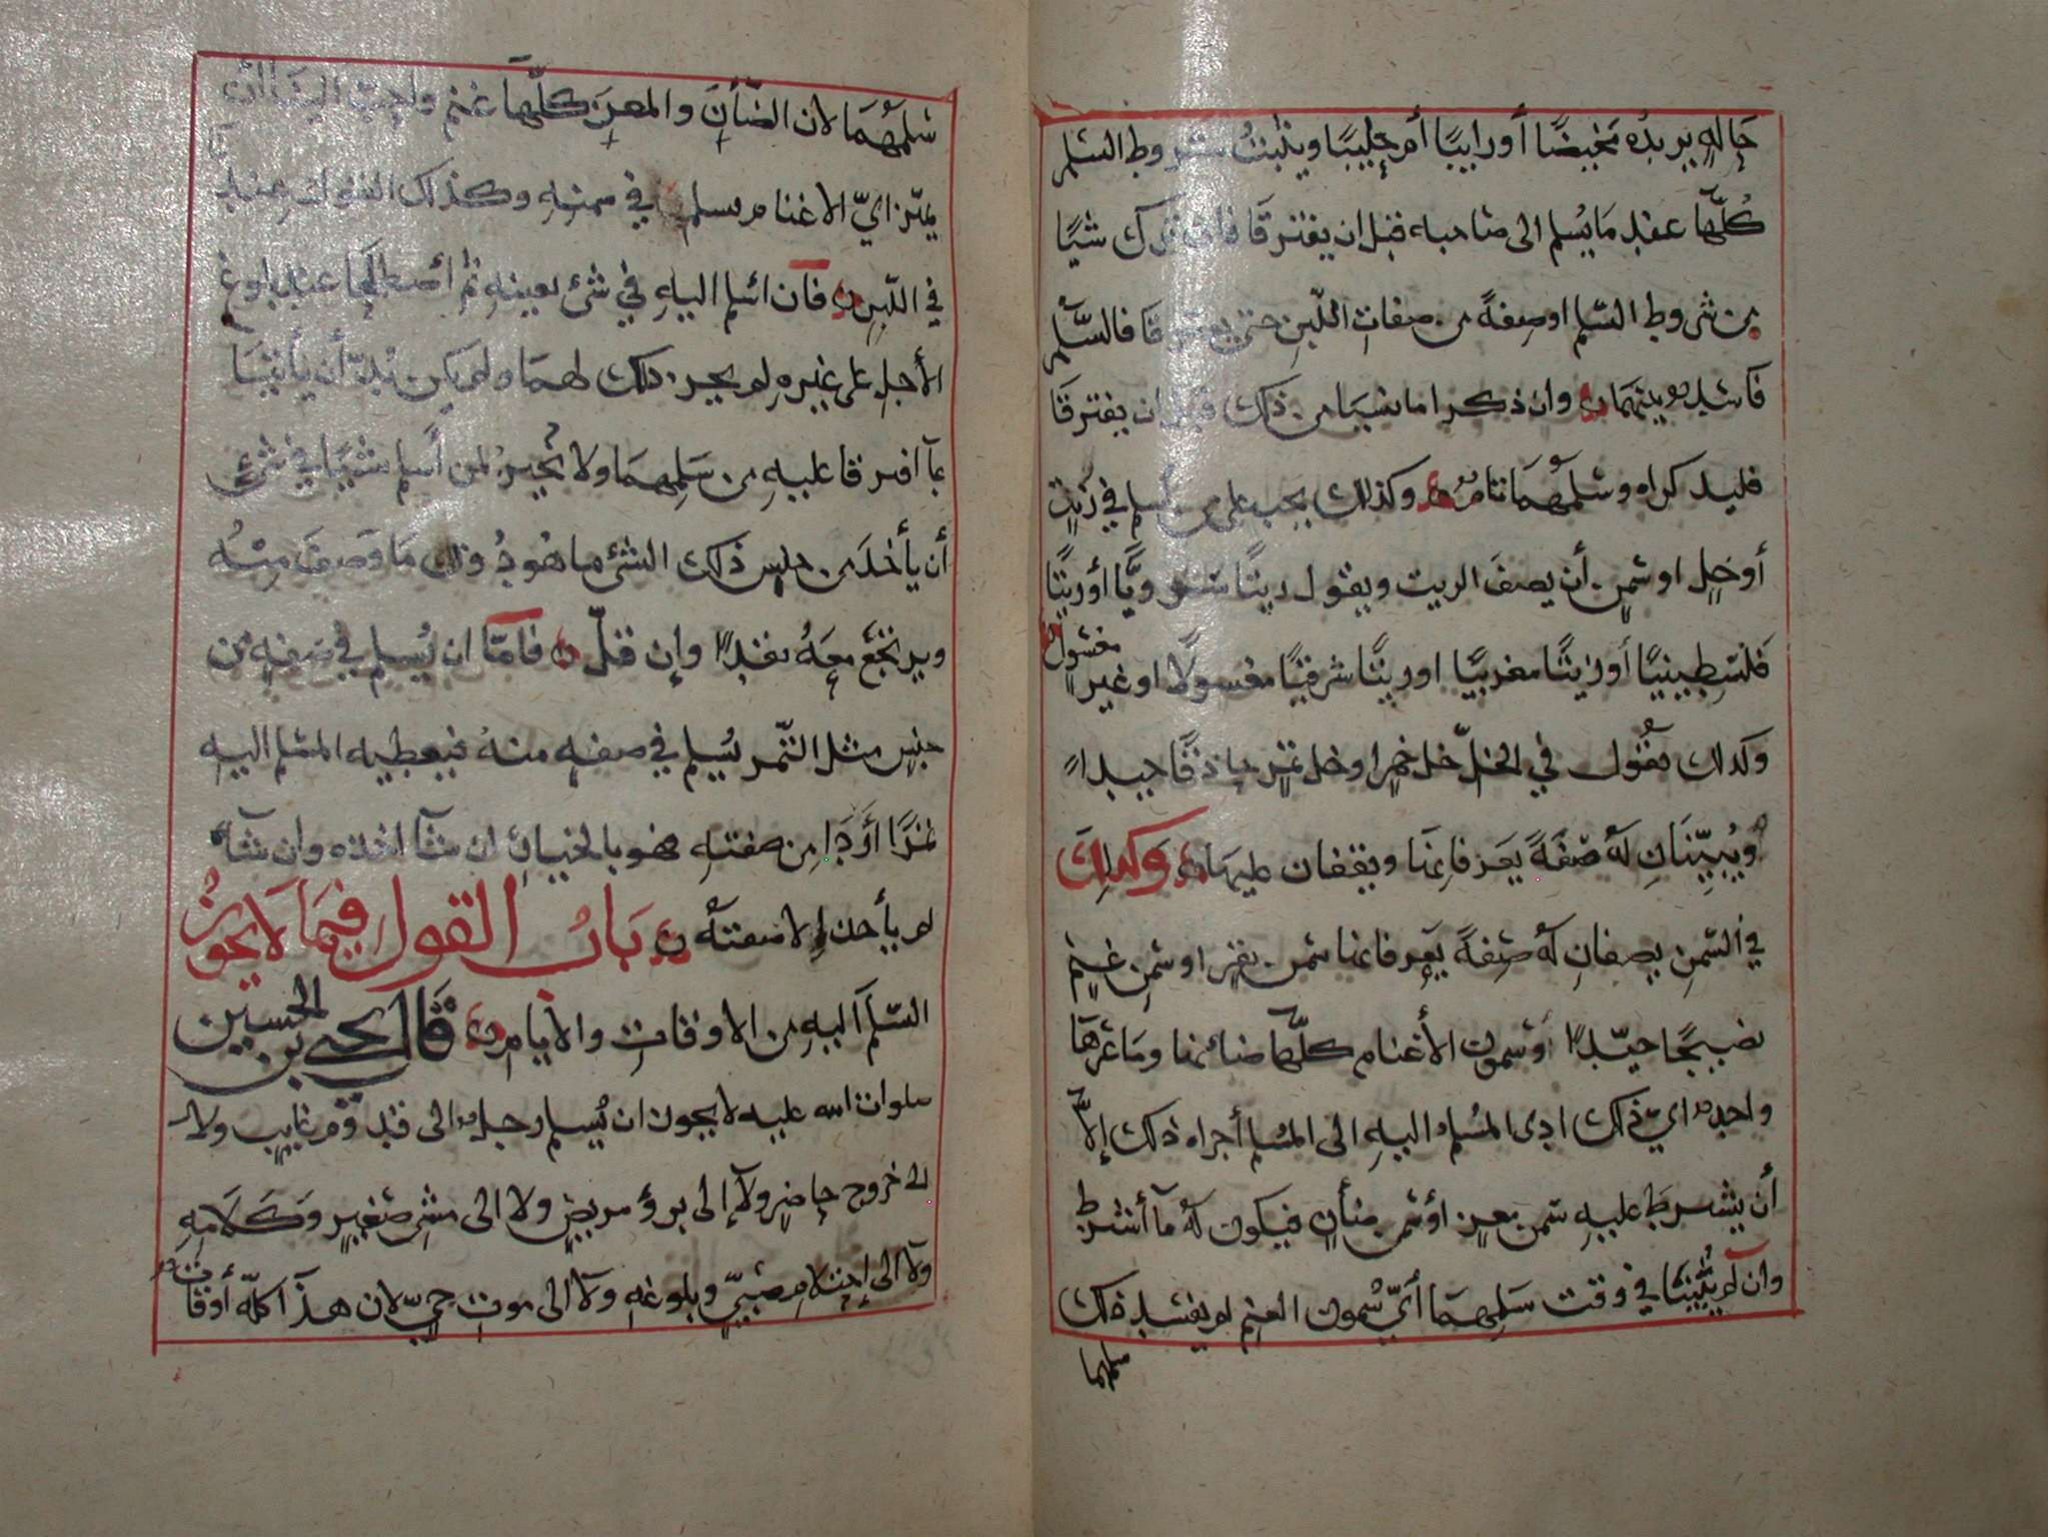 حاله يريده مخيضًا أو رايبًا أم حليبًا ويثبت شروط السلم
كُلَّها عند مَا يُسلم الى صَاحبه قبل ان يفترقَا فان ترك شيًا
من شروط السّلم او صِفةً من صفات اللّبن حتى يفترقا فالسَّلم
فَاسِد بينهمَا وان ذكرا ما نسيَا من ذلك قبل ان يفترقَا
فليذكراه وسَلَمهمَا تام وكذلك يجب على من أسلم في زيتٍ
أو خلٍ او سمنٍ أن يصفَ الزيت ويقول زيتًا شامويًّا أو زيتًا
فلسطينيًا أو زيتًا مغربيًا او زيتًا شرقيًا مغسولًا او غير مغسولٍ
وكذلك يقُول في الخلّ خل خمرٍ او خل تمرٍ حاذقًا جيدًا
ويُبيّنَانِ لَهُ صفةً يعرفانها ويقفان عليهَا وكذلك
في السّمن يصفانِ لَهُ صِفةً يعرفانها سمن بقرٍ او سَمن غنمٍ
نضيجًا جيّدًا وَسمون الأغنام كلّها ضائنها ومَاعزهَا
واحد ايّ ذلك ادى المُسلم اليهِ الى المُسلم أجزاه ذلك إلّا
أن يشرط عليهِ سمن معزٍ أو سمن ضأنٍ فيكون لَهُ مآ أشرط
وان لم يُثبتَا في وقت سَلمِهمَا أيّ سُمون الغنم لم يفسد ذلك
سلمهما
سَلَمهُمَا لان الضّأن والمعز كلّهَا غنم واحب الينَا ان
يميّز ايّ الاغنام يسلم في سمنهِ وكذلك القول عند
في اللبن فان اسلم اليهِ في شئ بعينهِ ثم اصطلحَا عند بلوغ
الأجلِ على غيرهِ لم يجز ذلك لهمَا ولم يكن بُدّ أن يأتيَا
بمآ افترقا عليهِ من سَلمِهمَا ولا يجُيز لمن أسلم شيًا في شئ
أن يأخذ من جنس ذلك الشئ ما هُو دون مَا وصَفَ مِنْهُ
ويرتجع معَهُ نقدًا وإن قلّ فامّا ان يُسلم في صفهٍ من
جنسٍ مثل التّمر يُسلم في صفهٍ منهُ فيعطيه المسلم اليهِ
تمرًا أردَا من صفتهِ فهو بالخيار ان شآ اخذه وان شآ
لم يأخذ إلا صفتَهُ بَابُ القول فيمَا لا يجوز
السّلم اليهِ من الاوقاتِ والأيامِ قال يحيى بن الحسين
صلوات الله عليه لا يجوز ان يُسلم رجل الى قدوم غايبٍ ولا
الى خروج حاضرٍ ولآ إلى برؤ مريضٍ ولا الى مشي صَغيرٍ وَكَلَامِهِ
ولآ الى إحتلام صَبيٍّ وبلوغهِ ولآ الى موتِ حيٍّ لان هذا كلّه أوقات